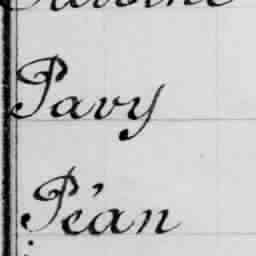 Pavy
Péan